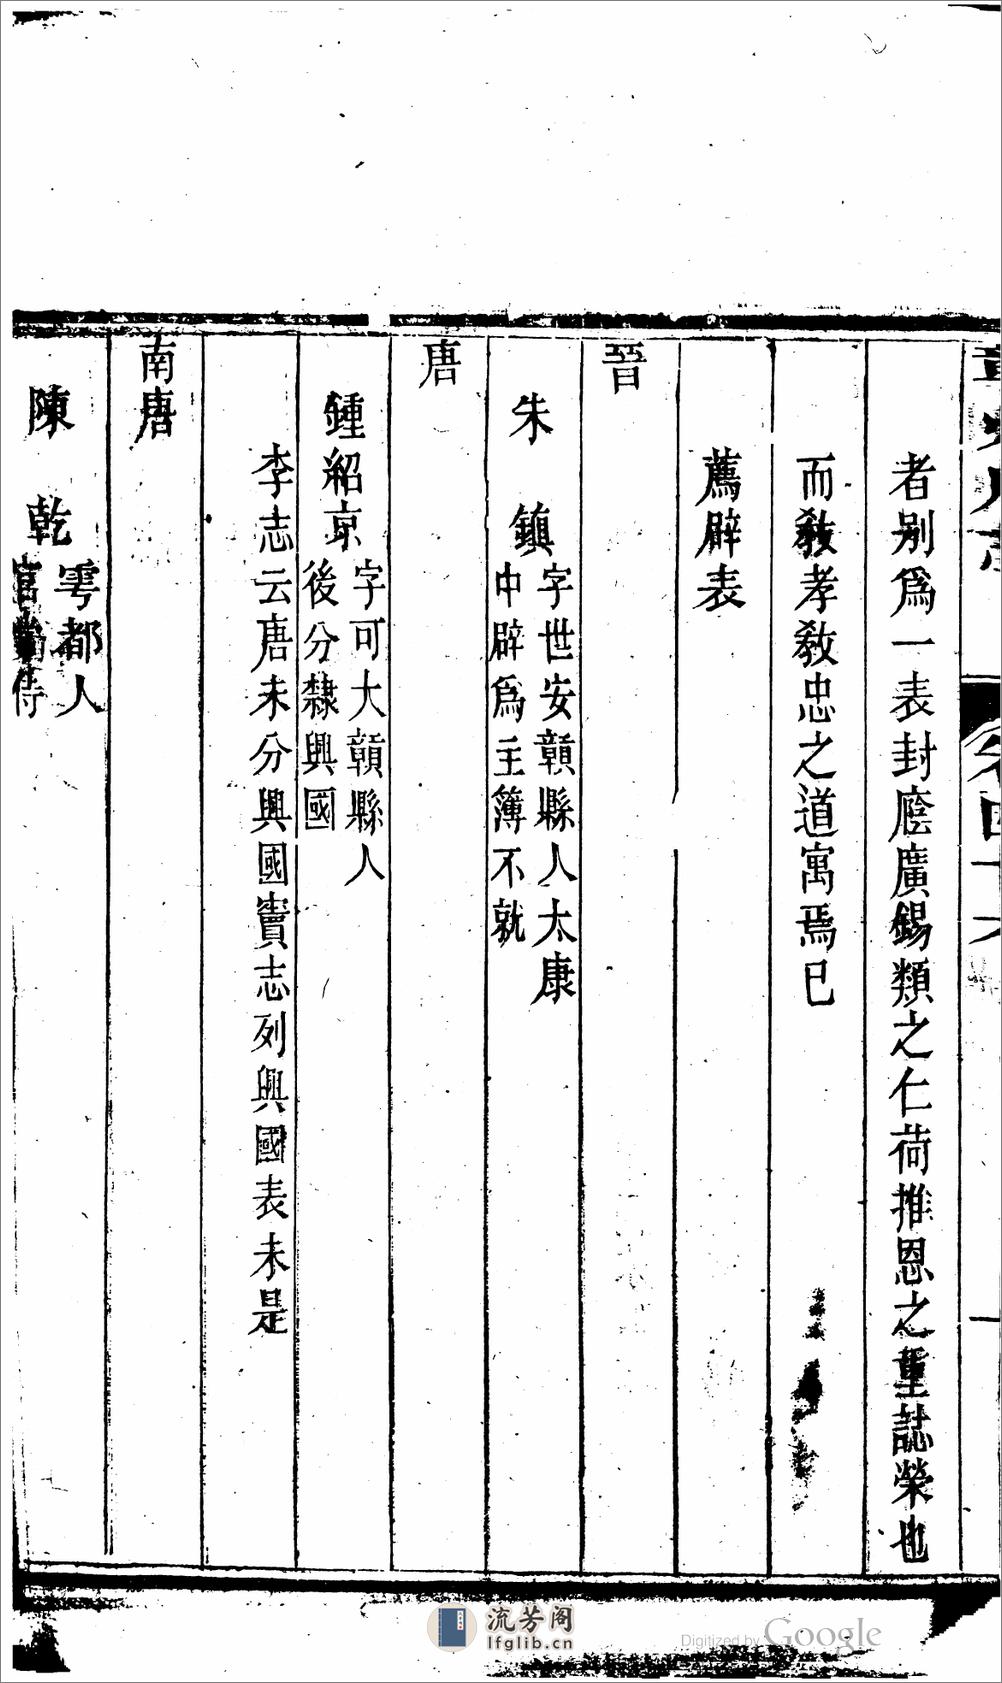 者別爲一表封廕廣錫類之仁荷推恩之重誌榮也
而教孝教忠之道寓焉已
薦辟表
晉
朱　鎮
字世安贛縣人太康
中辟爲主簿不就
唐
鍾紹京
字可大贛縣人
後分隸興國
李志云唐未分興國竇志列興國表未是
南唐
陳　乾
雩都人
官
侍
流芳阁
lfglib.cn
Digitized by Google